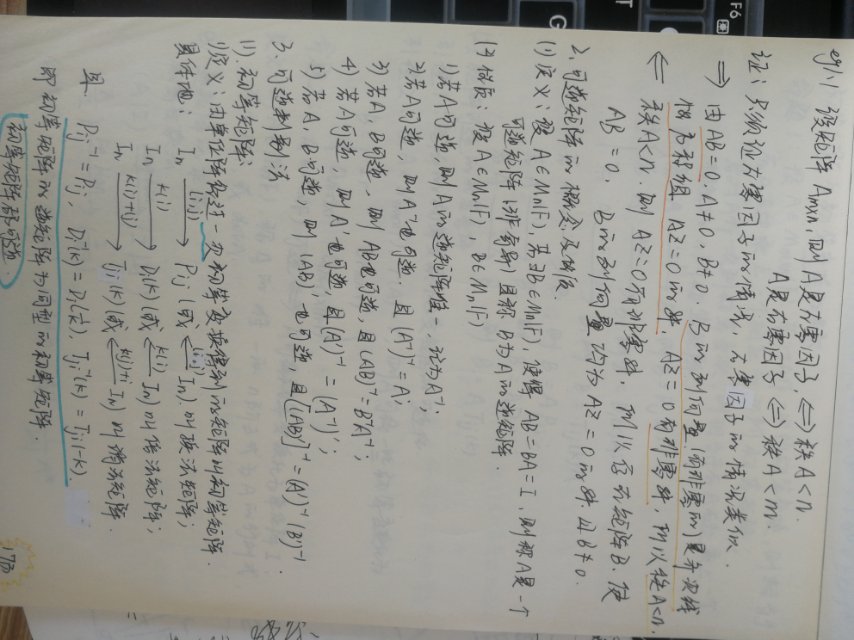 eg1.1 设矩阵 Amxn, 则 A是左零因子 ⟺ 秩A<n.
A是右零因子 ⟺ 秩A<m.
证: 只须证左零因子的情况, 右零因子的情况类似.
⇒ 由AB=0. A≠0. B≠0. B的列向量(有非零的)是齐次线
性方程组 AZ=0的解, AZ=0有非零解, 所以秩A<n.
⇐ 秩A<n. 则 AZ=0有非零解, 所以存在矩阵B. 使
AB=0. B的列向量均为AZ=0的解. 且B≠0.
2、可逆矩阵的概念及性质.
(1) 定义: 设A∈Mn(F), 若∃B∈Mn(F), 使得 AB=BA=I, 则称A是一个
可逆矩阵(非奇异) 且称B为A的逆矩阵.
(2) 性质: 设A∈Mn(F), B∈Mn(F)
1) 若A可逆, 则A的逆矩阵唯一, 记为A⁻¹;
2) 若A可逆, 则A⁻¹可逆. 且(A⁻¹)⁻¹=A;
3) 若A、B可逆, 则AB也可逆, 且(AB)⁻¹=B⁻¹A⁻¹;
4) 若A可逆, 则A'也可逆, 且(A')⁻¹=(A⁻¹)';
5) 若A、B可逆, 则(AB)'也可逆, 且[(AB)']⁻¹=(A')⁻¹(B')⁻¹.
3、可逆判别法
(1). 初等矩阵:
1) 定义: 由单位阵经过一次初等变换得到的矩阵叫初等矩阵.
具体地: In —(i,j)→ Pij (或 ←(i,j)— In). 叫换法矩阵;
In —k(i)→ Di(k) (或 ←k(i)— In) 叫倍法矩阵;
In —k(i)+(j)→ Tji(k) (或 ←k(j)+i— In) 叫消法矩阵.
且. Pij⁻¹=Pij, Di⁻¹(k)=Di(k⁻¹), Tji⁻¹(k)=Tji(-k).
即初等矩阵的逆矩阵为同型的初等矩阵.
初等矩阵都可逆.
170
F6
G
T